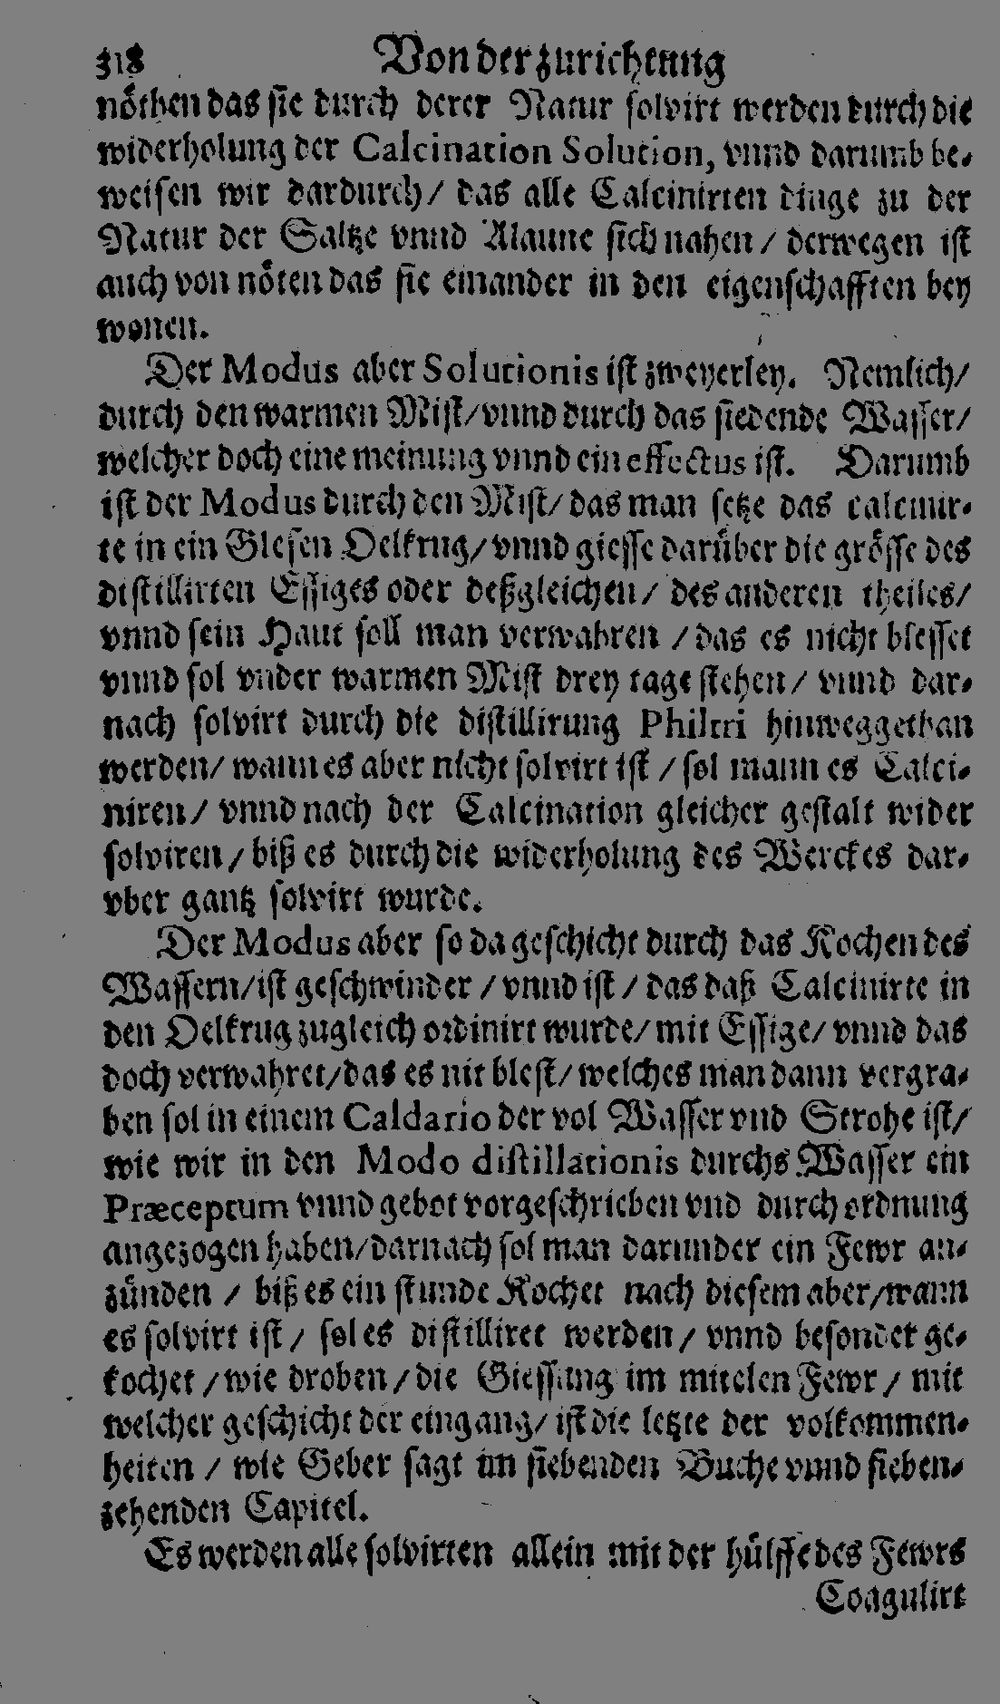 318 Von der zurichtung
nöthen das sie durch derer Natur solvirt werden durch die
widerholung der Calcination Solution, vnnd darumb be-
weisen wir dardurch / das alle Calcinirten dinge zu der
Natur der Saltze vnnd Alaune sich nahen / derwegen ist
auch von nöten das sie einander in den eigenschafften bey
wonen.
Der Modus aber Solutionis ist zweyerley. Nemlich /
durch den warmen Mist / vnnd durch das siedende Wasser /
welcher doch eine meinung vnnd ein effectus ist. Darumb
ist der Modus durch den Mist / das man setze das calcinir-
te in ein Glesen Oelkrug / vnnd giesse darüber die grösse des
distillirten Essiges oder deßgleichen / des anderen theiles /
vnnd sein Haut soll man verwahren / das es nicht blesset
vnnd sol vnder warmen Mist drey tage stehen / vnnd dar-
nach solvirt durch die distillirung Philtri hinweggethan
werden / wann es aber nicht solvirt ist / sol mann es Calci-
niren / vnnd nach der Calcination gleicher gestalt wider
solviren / biß es durch die widerholung des Werckes dar-
vber gantz solvirt wurde.
Der Modus aber so da geschicht durch das Kochen des
Wassern / ist geschwinder / vnnd ist / das daß Calcinirte in
den Oelkrug zugleich ordinirt wurde / mit Essige / vnnd das
doch verwahret / das es nit blest / welches man dann vergra-
ben sol in einem Caldario der vol Wasser vnd Strohe ist /
wie wir in den Modo distillationis durchs Wasser ein
Præceptum vnnd gebot vorgeschrieben vnd durch ordnung
angezogen haben / darnach sol man darunder ein Fewr an-
zünden / biß es ein stunde Kochet nach diesem aber / wann
es solvirt ist / sol es distilliret werden / vnnd besonder ge-
kochet / wie droben / die Giessung im mitelen Fewr / mit
welcher geschicht der eingang / ist die letzte der volkommen-
heiten / wie Geber sagt im siebenden Buche vnnd sieben-
zehenden Capitel.
Es werden alle solvirten allein mit der hülffe des Fewrs
Coagulirt